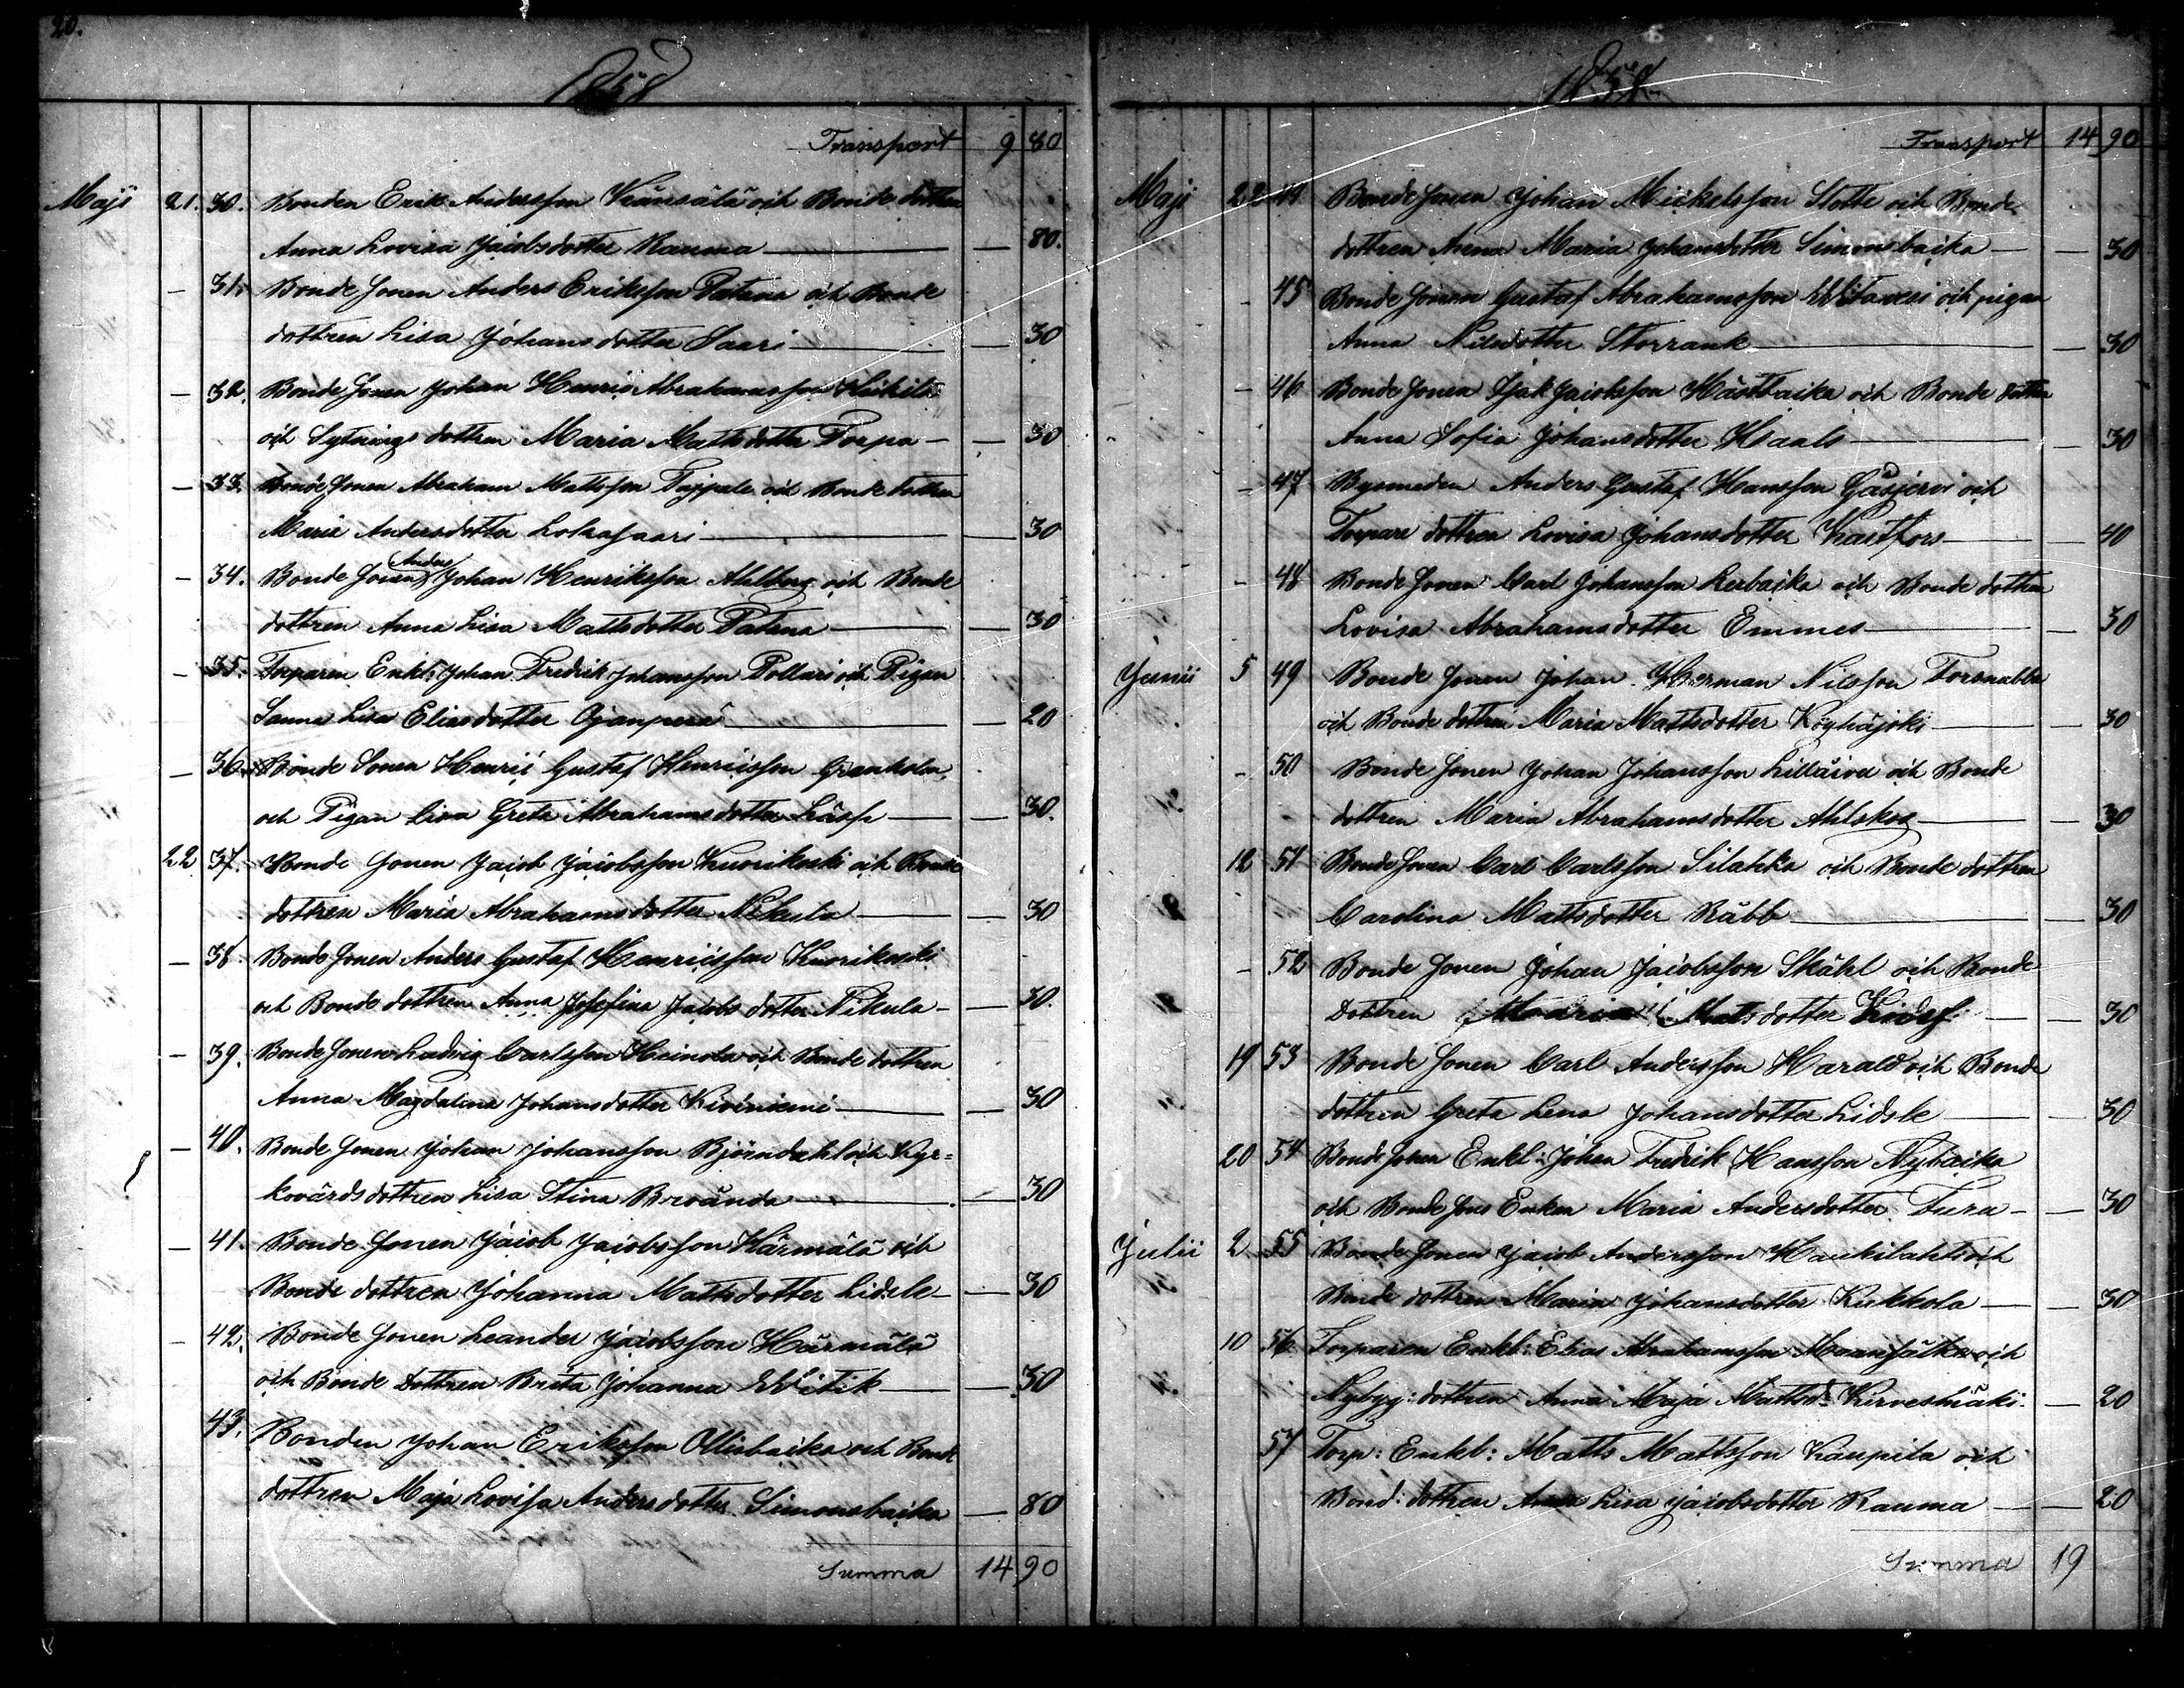 20.
1858
Transport 9 80
Maji 21. 30. Bonden Erik Andersson Känsälä och Bonde dottren
Anna Lovisa Jacobsdotter Rauma — 80.
— 31. Bonde Sonen Anders Eriksson Patana och Bonde
dottren Lisa Johansdotter Saari — 30
— 32. Bonde Sonen Johan Henric Abrahamsson
och Sytnings dottren Maria Mattsdotter Torpa — 30
— 33. Bonde Sonen Abraham Mattsson och Bonde dottren
Maria Andersdotter Lokasaari — 30
— 34. Bonde Sonen Anders Johan Henriksson Ahlberg och Bonde
dottren Anna Lisa Mattsdotter Patana — 30
— 35. Torparen Enkl: Johan Fredrik Johansson Pollari och Pigan
Sanna Lisa Eliasdotter Ojanperä — 20
— 36. Bonde Sonen Henric Gustaf Henricsson Granholm,
och Pigan Lisa Greta Abrahamsdotter Läsp — 30.
22. 37. Bonde Sonen Jacob Jacobsson Kuorikoski och Bonde
dottren Maria Abrahamsdotter Nikula — 30
— 38. Bonde Sonen Anders Gustaf Henricsson Kuorikoski
och Bonde dottren Anna Josefina Jacobsdotter Nikula — 30.
— 39. Bonde Sonen Ludvig Carlsson Heinola och Bonde dottren
Anna Magdalena Johansdotter Kiviniemi — 30
— 40. Bonde Sonen Johan Johansson Björndahl och Kyr=
kovärdsdottren Lisa Stina Brevända — 30
— 41. Bonde Sonen Jacob Jacobsson Härmälä och
Bonde dottren Johanna Mattsdotter Lidsle — 30
— 42. Bonde Sonen Leander Jacobsson Härmälä
och Bonde Dottren Brita Johanna Witik — 30
43. Bonden Johan Eriksson Ollisbacka och Bonde
dottren Maja Lovisa Andersdotter Simonsbacka — 80
Summa 14 90
1858
Transport 14 90
Maji 22 44 Bonde Sonen Johan Mickelsson Slotte och Bonde
dottren Anna Maria Johansdotter Simonsbacka — 30
— 45 Bonde Sonen Gustaf Abrahamsson Witavesi och pigan
Anna Nilsdotter Storrank — 30
— 46 Bonde Sonen Isak Jacobsson Hästbacka och Bonde dotter
Anna Sofia Johansdotter — 30
— 47 Bysmeden Anders Gustaf Hansson Gåsjervi och
Torpare dottren Lovisa Johansdotter Kastfors — 40
— 48 Bonde Sonen Carl Johansson Lerbacka och Bonde dottren
Lovisa Abrahamsdotter Emmes — 30
Junii 5 49 Bonde Sonen Johan Herman Nilsson Forsnabba
och Bonde dottren Maria Mattsdotter Köyhäjoki — 30
— 50 Bonde Sonen Johan Johansson och Bonde
dottren Maria Abrahamsdotter Ahlskog — 30
12 51 Bonde Sonen Carl Carlsson Silahka och Bonde dottren
Carolina Mattsdotter Räbb — 30
— 52 Bonde Sonen Johan Jacobsson Skähl och Bonde
Dottren Maria Matsdotter — 30
19 53 Bonde Sonen Carl Andersson Harald och Bonde
dottren Greta Lena Johansdotter Lidsle — 30
20 54 Bonde Sonen Enkl: Johan Fredrik Hansson Nybacka
och Bonde Sons Enkan Maria Andersdotter Furu — 30
Julii 2 55 Bonde Sonen Jacob Andersson Haukilahti och
Bonde dottren Maria Johansdotter Kukkola — 30
10 56 Torparen Enkl: Elias Abrahamsson och
Nybyg: dottren Anna Maja Mattsd: — 20
57 Torp: Enkl: Matts Mattsson Kaupila och
Bond: dottren Anna Lisa Jacobsdotter Rauma — 20
Summa 19